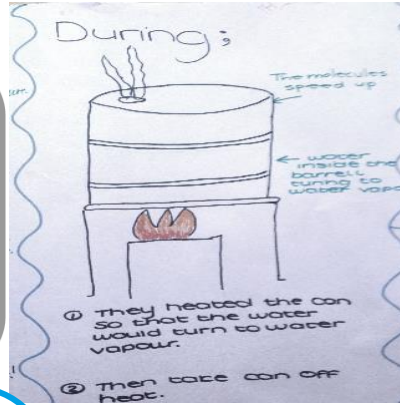 During;
The molecules
speed up
← water
inside the
barrell
turing to
water vapo
① They heated the can
so that the water
would turn to water
vapour.
② Then take can off
heat.